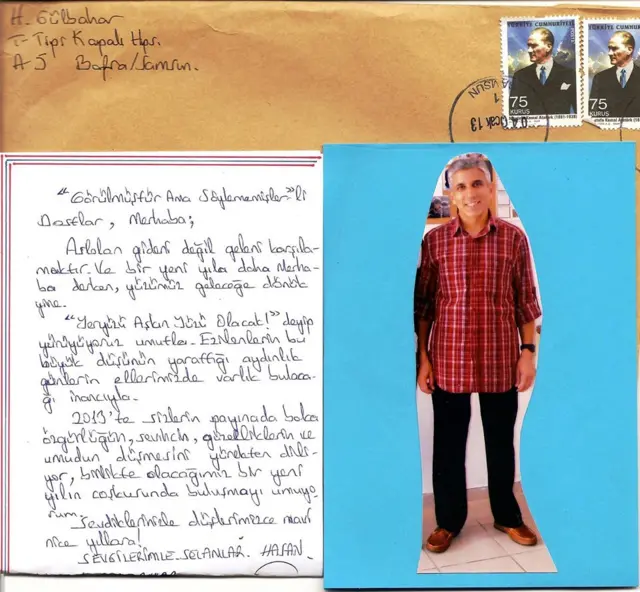 H. Gülbahar
T-Tipi Kapalı Hps.
A5 Bafra/Samsun.
TÜRKİYE CUMHURİYETİ
75
KURUŞ
TÜRKİYE CUMHU
75
KURUŞ
SAMSUN
Ocak 13
"Görülmüştür Ama Söylememişler"li
Dostlar, Merhaba;
Aslolan gideni değil geleni karşıla-
maktır. Ve bir yeni yıla daha Merha-
ba derken, yüzümüz geleceğe dönük
yine.
"Yeryüzü Aşkın Yüzü Olacak!" deyip
yürüyoruz umutla. Ezilenlerin bu
büyük düşünün yarattığı aydınlık
günlerin ellerimizde varlık bulaca-
ğı inancıyla.
2013'te sizlerin payınada bolca
özgürlüğün, sevincin, güzelliklerin ve
umudun düşmesini yürekten dili-
yor, birlikte olacağımız bir yeni
yılın coşkusunda buluşmayı umuyo-
rum.
Sevdiklerinizle düşlerimizce mavi
nice yıllara!
SEVGİLERİMLE. SELAMLAR. HASAN.